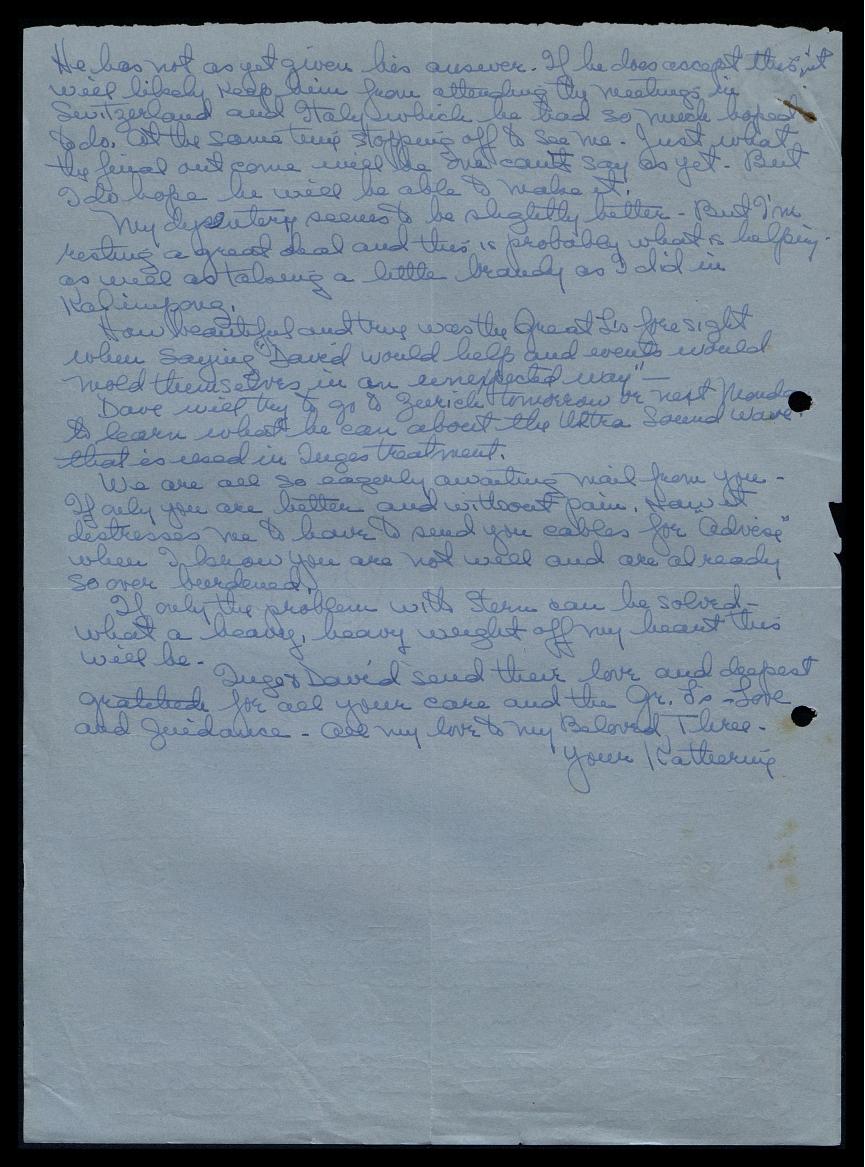 He has not as yet given his answer. If he does accept this, it
will likely keep him from attending the meetings in
Switzerland and Italy which he had so much hoped
to do. At the same time stopping off to see me. Just what
the final out come will be one can't say as yet. But
I do hope he will be able to make it.
My dysentery seems to be slightly better - But I'm
resting a great deal and this is probably what is helping -
as well as taking a little brandy as I did in
Kalimpong.
How beautiful and true was the Great L's foresight
when saying "David would help and events would
mold themselves in an unexpected way" —
Dave will try to go to Zurich tomorrow or next Monda
to learn what he can about the Ultra Sound Wave
that is used in Inges treatment.
We are all so eagerly awaiting mail from you -
If only you are better and without pain. How it
distresses me to have to send you cables for "advise"
when I know you are not well and are already
so over burdened.
If only the problem with Stern can be solved -
what a heavy, heavy weight off my heart this
will be.
Inge & David send their love and deepest
gratitude for all your care and the Gr. L's - Love
and Guidance - All my love to my Beloved Three -
Your Katherine